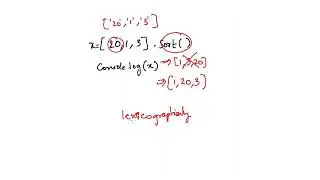 ['20','1','3']
x=[20,1,3].sort()
console.log(x) → [1,3,20]
→ [1,20,3]
lexicographically